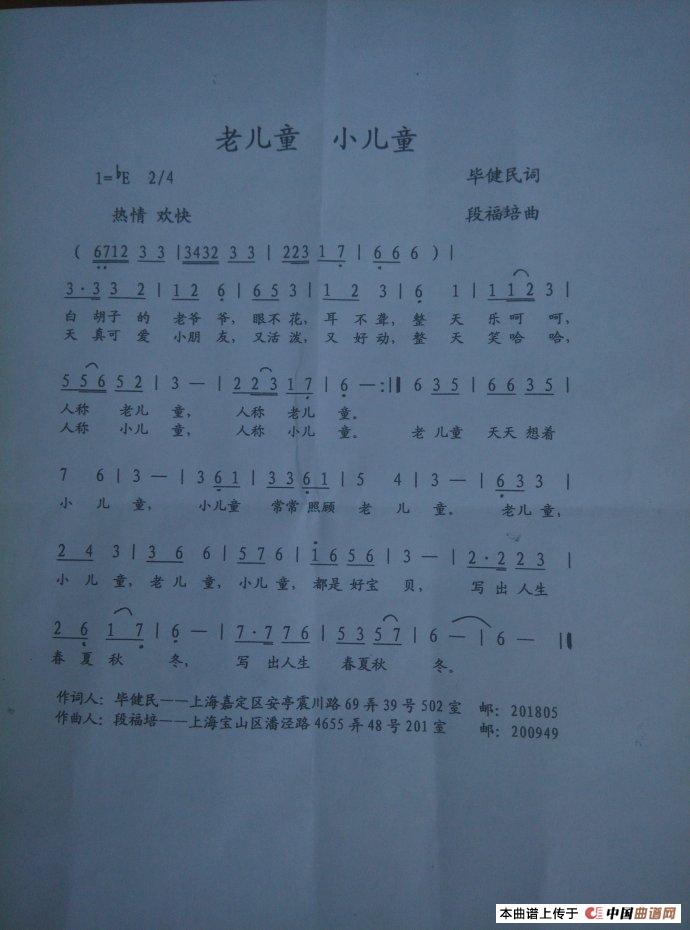 老儿童 小儿童
1=♭E 2/4 毕健民词
热情 欢快 段福培曲
( 6712 3 3 | 3432 3 3 | 223 1 7 | 6 6 6 ) |
3·3 3 2 | 1 2 6 | 6 5 3 | 1 2 3 | 6 1 | 1 1 2 3 |
白 胡子 的 老 爷 爷, 眼 不 花, 耳 不 聋, 整 天 乐 呵 呵,
天 真可 爱 小 朋 友, 又 活 泼, 又 好 动, 整 天 笑 哈 哈,
5 5 6 5 2 | 3 — | 2 2 3 1 7 | 6 —:‖ 6 3 5 | 6 6 3 5 |
人称 老儿 童, 人称 老儿 童。
人称 小儿 童, 人称 小儿 童。 老 儿童 天天 想着
7 6 | 3 — | 3 6 1 | 3 3 6 1 | 5 4 | 3 — | 6 3 3 |
小 儿 童, 小儿童 常常 照顾 老 儿 童。 老儿童,
2 4 3 | 3 6 6 | 5 7 6 | 1 6 5 6 | 3 — | 2·2 2 3 |
小 儿 童, 老 儿 童, 小儿 童, 都是 好宝 贝, 写 出 人生
2 6 1 7 | 6 — | 7·7 7 6 | 5 3 5 7 | 6 — | 6 — ‖
春 夏 秋 冬, 写 出人生 春夏秋 冬。
作词人: 毕健民——上海嘉定区安亭震川路 69 弄 39 号 502 室 邮: 201805
作曲人: 段福培——上海宝山区潘泾路 4655 弄 48 号 201 室 邮: 200949
本曲谱上传于 中国曲谱网